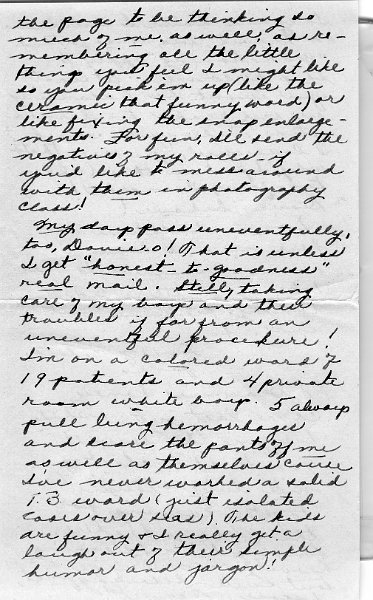 the page to be thinking so
much of me, as well, as re-
membering all the little
things you feel I might like
so you pick em up (like the
ceramic that funny word) or
like fixing the snap enlarge-
ments. For fun, I'll send the
negatives of my rolls - if
you'd like to mess around
with them in photography
class!
My days pass uneventfully,
too, Davie o! That is unless
I get "honest-to-goodness"
real mail. Still, taking
care of my boys and their
troubles is far from an
uneventful procedure!
I'm on a colored ward of
19 patients and 4 private
room white boys. 5 always
pull lung hemorrhages
and scare the pants off me
as well as themselves cause
I've never worked a solid
T.B ward (just isolated
cases over seas). The kids
are funny & I really get a
laugh out of their simple
humor and jargon!